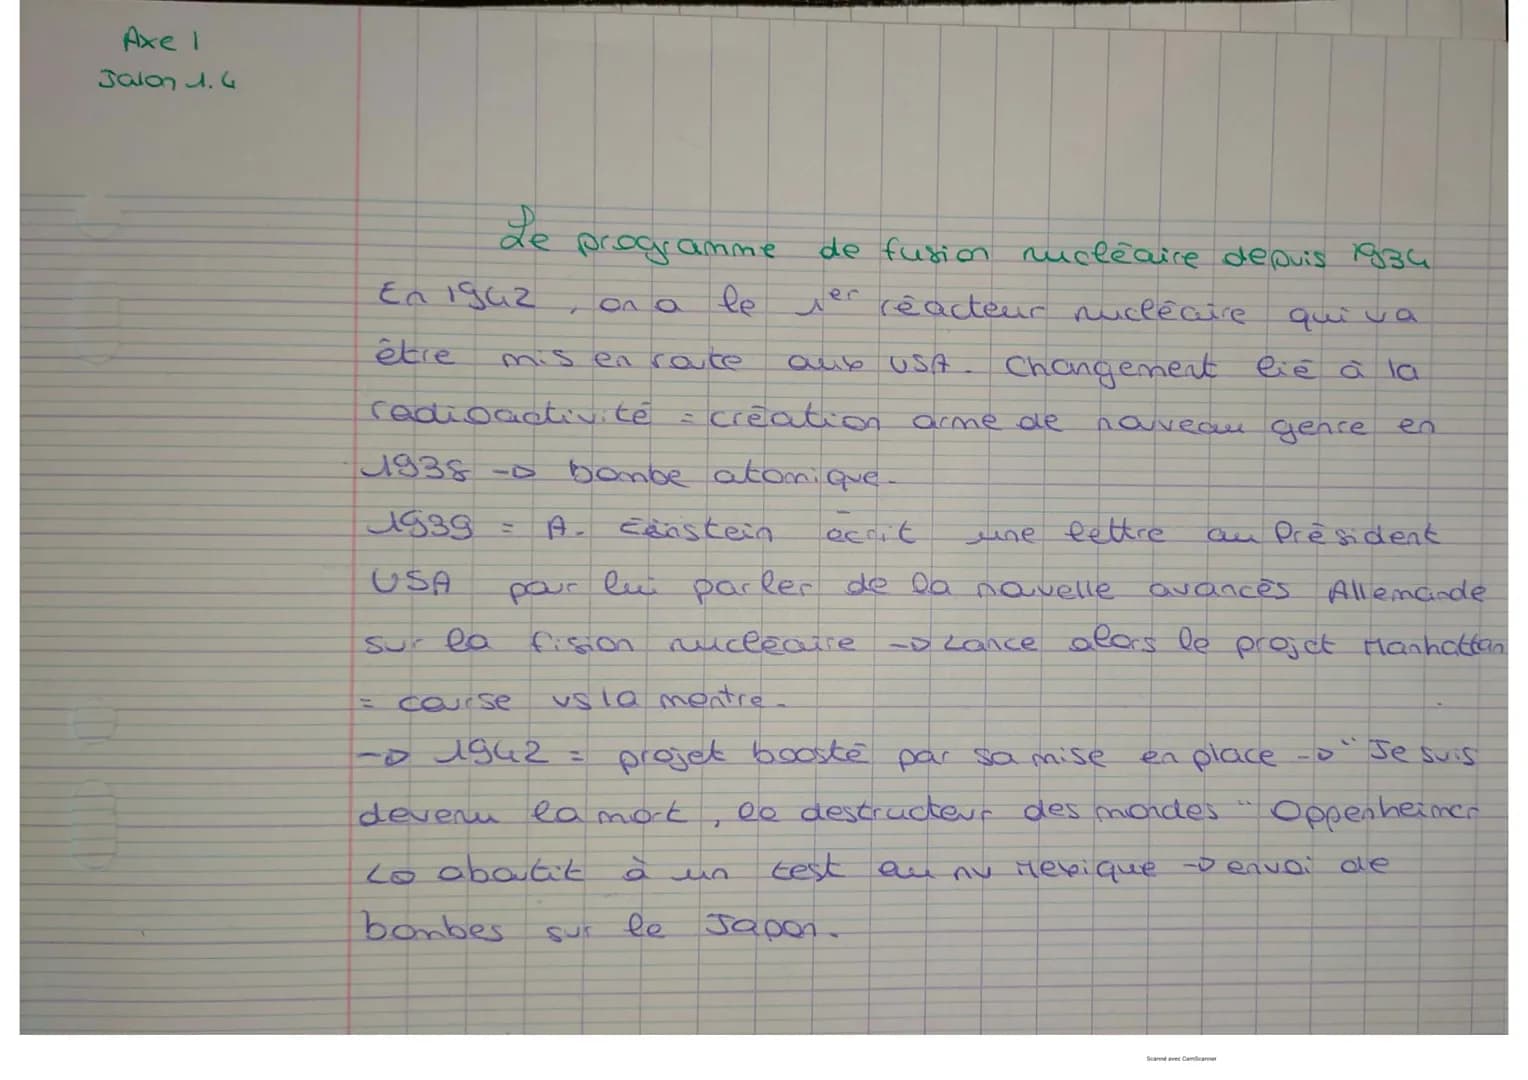 Axe 1
Jalon 1.4
Le programme de fusion nucléaire depuis 1934
En 1942, on a le 1er réacteur nucléaire qui va
être mis en route aux USA. Changement lié à la
radioactivité = création arme de nouveau genre en
1938 → bombe atomique.
1939 = A. Einstein écrit une lettre au Président
USA pour lui parler de la nouvelle avancés Allemande
sur la fision nucléaire → Lance alors le projet Manhattan
= course vs la montre.
→ 1942 = projet boosté par sa mise en place → "Je suis
devenu la mort, le destructeur des mondes" Oppenheimer
↳ aboutit à un test au nv Mexique → envoi de
bombes sur le Japon.
Scanné avec CamScanner